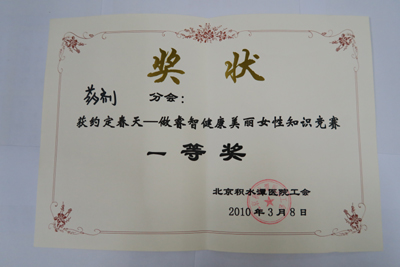 奖状
药剂 分会：
获约定春天—做睿智健康美丽女性知识竞赛
一等奖
北京积水潭医院工会
2010年3月8日